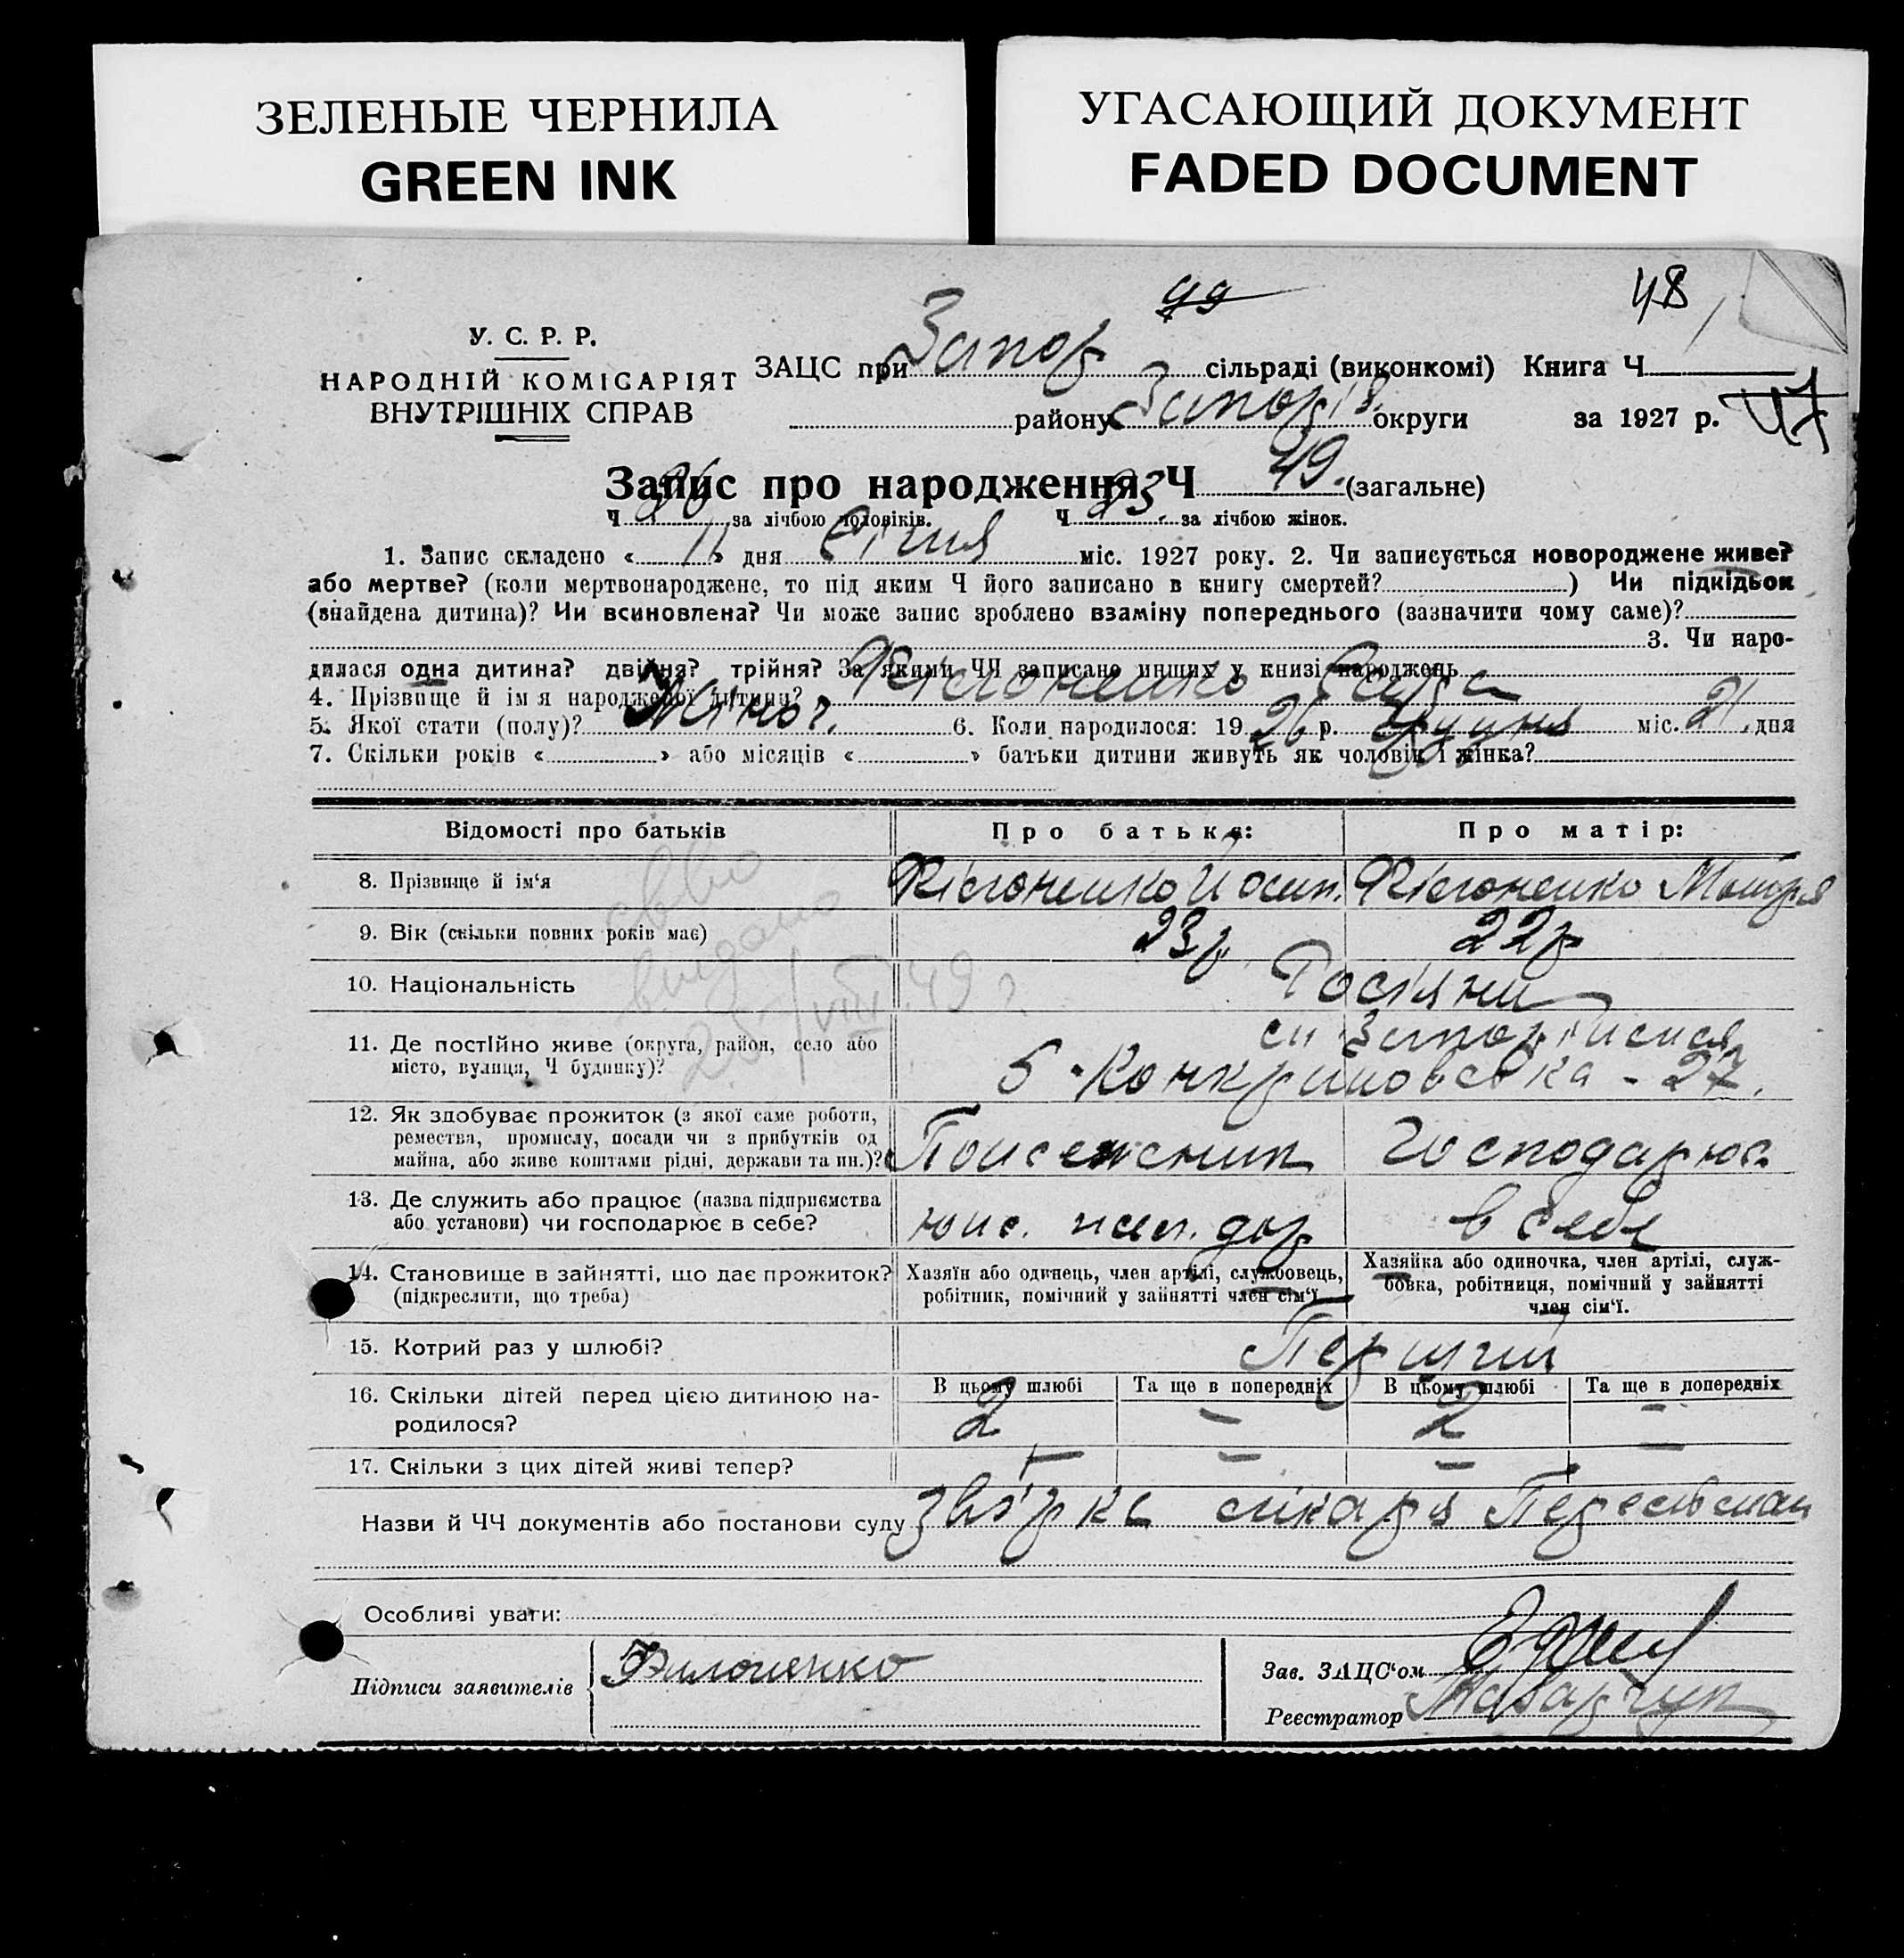 ЗЕЛЕНЫЕ ЧЕРНИЛА
GREEN INK
УГАСАЮЩИЙ ДОКУМЕНТ
FADED DOCUMENT
99
48
У. С. Р. Р.
НАРОДНІЙ КОМІСАРІЯТ
ВНУТРІШНІХ СПРАВ
ЗАЦС при Запор сільраді (виконкомі) Книга Ч
району Запоріз округи за 1927 р. 47
Запис про народження Ч 49. (загальне)
Ч 26 за лічбою чоловіків. Ч 23. за лічбою жінок.
1. Запис складено « 11 » дня Січня міс. 1927 року. 2. Чи записується новороджене живе?
або мертве? (коли мертвонароджене, то під яким Ч його записано в книгу смертей? ) Чи підкідьок
(знайдена дитина)? Чи всиновлена? Чи може запис зроблено взаміну попереднього (зазначити чому саме)?
3. Чи наро-
дилася одна дитина? двійня? трійня? За якими ЧЧ записано инших у книзі народжень
4. Прізвище й ім'я народженої дитини? Філоненко
5. Якої стати (полу)? Жіноч. 6. Коли народилося: 19 26 р. Грудня міс. 21 дня
7. Скільки років « » або місяців « » батьки дитини живуть як чоловік і жінка?
Відомості про батьків Про батька: Про матір:
8. Прізвище й ім'я Філоненко Йосип. Філоненко Мотря
9. Вік (скільки повних років має) 23 р 22 р
10. Національність Росіяни
11. Де постійно живе (округа, район, село або
місто, вулиця, Ч будинку)?
27.
св-во
видано
25/VIII 49 г
12. Як здобуває прожиток (з якої саме роботи,
ремества, промислу, посади чи з прибутків од
майна, або живе коштами рідні, держави та ин.)? Господарює
13. Де служить або працює (назва підприємства
або установи) чи господарює в себе? в себе
14. Становище в зайнятті, що дає прожиток?
(підкреслити, що треба)
Хазяїн або одинець, член артілі, службовець,
робітник, помічний у зайнятті член сім'ї
Хазяйка або одиночка, член артілі, служ-
бовка, робітниця, помічний у зайнятті
член сім'ї.
15. Котрий раз у шлюбі? Перший
16. Скільки дітей перед цією дитиною на-
родилося?
В цьому шлюбі Та ще в попередніх В цьому шлюбі Та ще в попередніх
2 – 2 –
17. Скільки з цих дітей живі тепер? – – – –
Назви й ЧЧ документів або постанови суду лікаря
Особливі уваги:
Підписи заявителів Филоненко
Зав. ЗАЦС'ом
Реєстратор